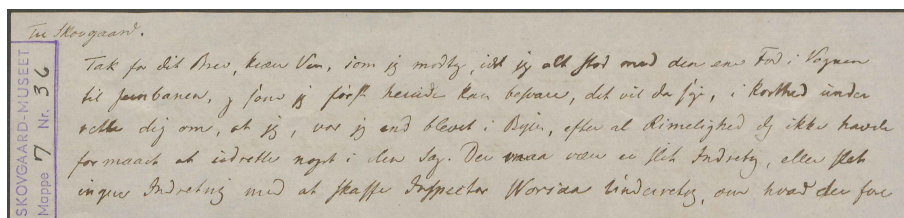 Til Skovgaard.
Tak for dit Brev, kiære Ven, som jeg modtog, idet jeg alt stod med den ene Fod i Vognen
til Jernbanen, og som jeg først herinde kan besvare, det vil da sige, i Korthed under
rette dig om, at jeg, var jeg end blevet i Byen, efter al Rimelighed dog ikke havde
formaaet at udrette noget i den Sag. Der maa være en slet Indretng, eller slet
ingen Indretnig med at skaffe Inspecteur Worsaa Underretng, om hvad der fore
SKOVGAARD-MUSEET
Mappe 7 Nr. 36